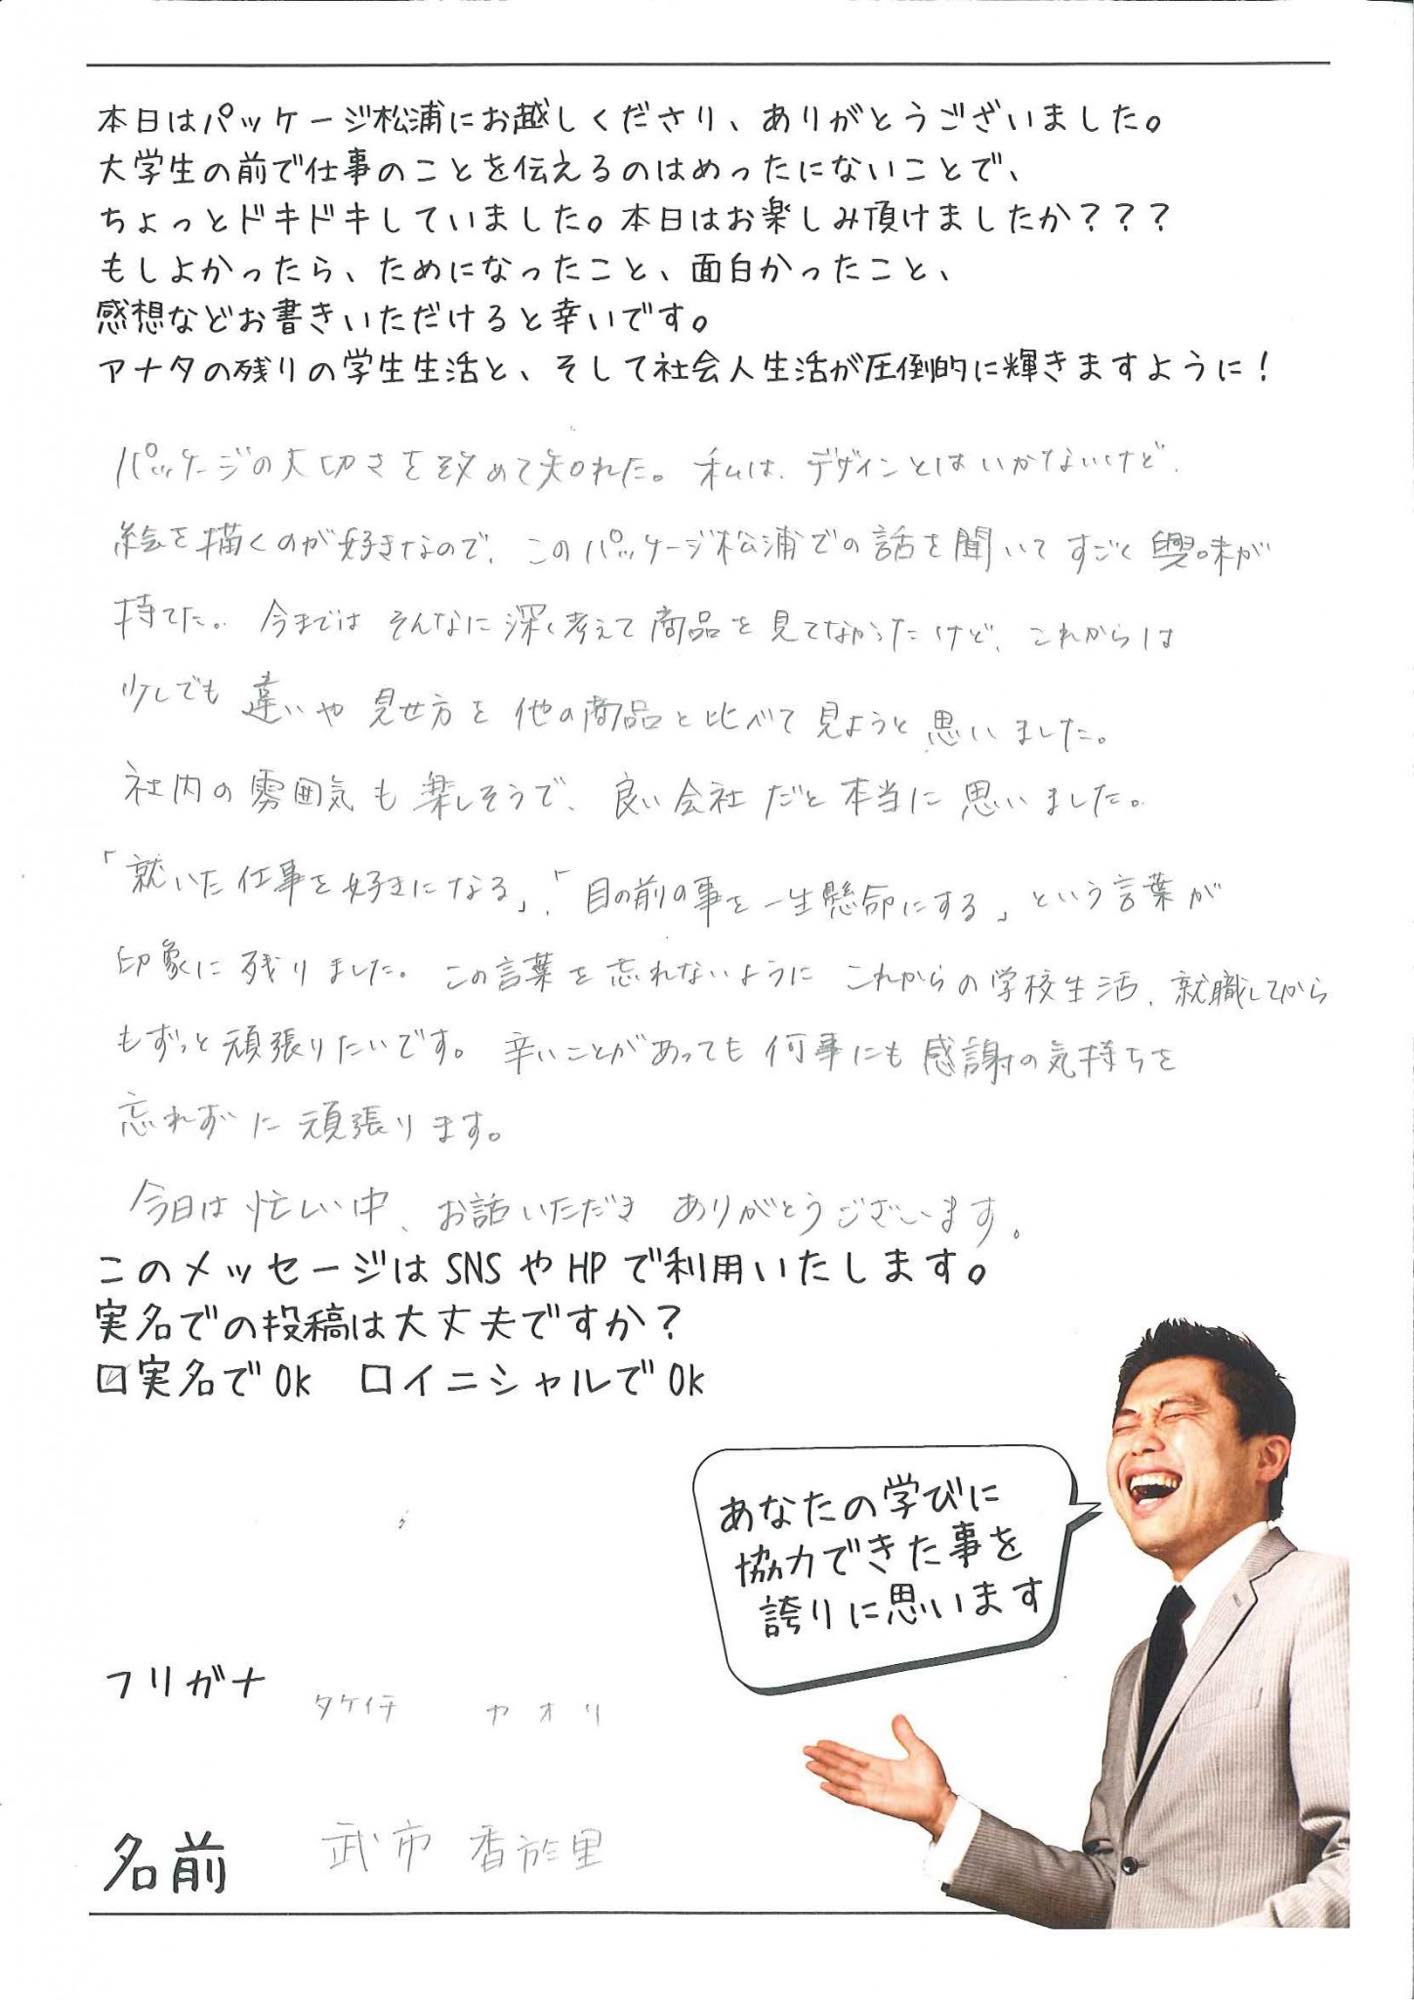 本日はパッケージ松浦にお越しくださり、ありがとうございました。
大学生の前で仕事のことを伝えるのはめったにないことで、
ちょっとドキドキしていました。本日はお楽しみ頂けましたか？？？
もしよかったら、ためになったこと、面白かったこと、
感想などお書きいただけると幸いです。
アナタの残りの学生生活と、そして社会人生活が圧倒的に輝きますように！
パッケージの大切さを改めて知れた。私は、デザインとはいかないけど、
絵を描くのが好きなので、このパッケージ松浦での話を聞いてすごく興味が
持てた。今まではそんなに深く考えて商品を見てなかったけど、これからは
少しでも違いや見せ方を他の商品と比べて見ようと思いました。
社内の雰囲気も楽しそうで、良い会社だと本当に思いました。
「就いた仕事を好きになる」、「目の前の事を一生懸命にする」という言葉が
印象に残りました。この言葉を忘れないようにこれからの学校生活、就職してから
もずっと頑張りたいです。辛いことがあっても何事にも感謝の気持ちを
忘れずに頑張ります。
今日は忙しい中、お話いただきありがとうございます。
このメッセージはSNSやHPで利用いたします。
実名での投稿は大丈夫ですか？
☑実名でOk　口イニシャルでOk
あなたの学びに
協力できた事を
誇りに思います
フリガナ　タケイチ　カオリ
名前　武市　香於里